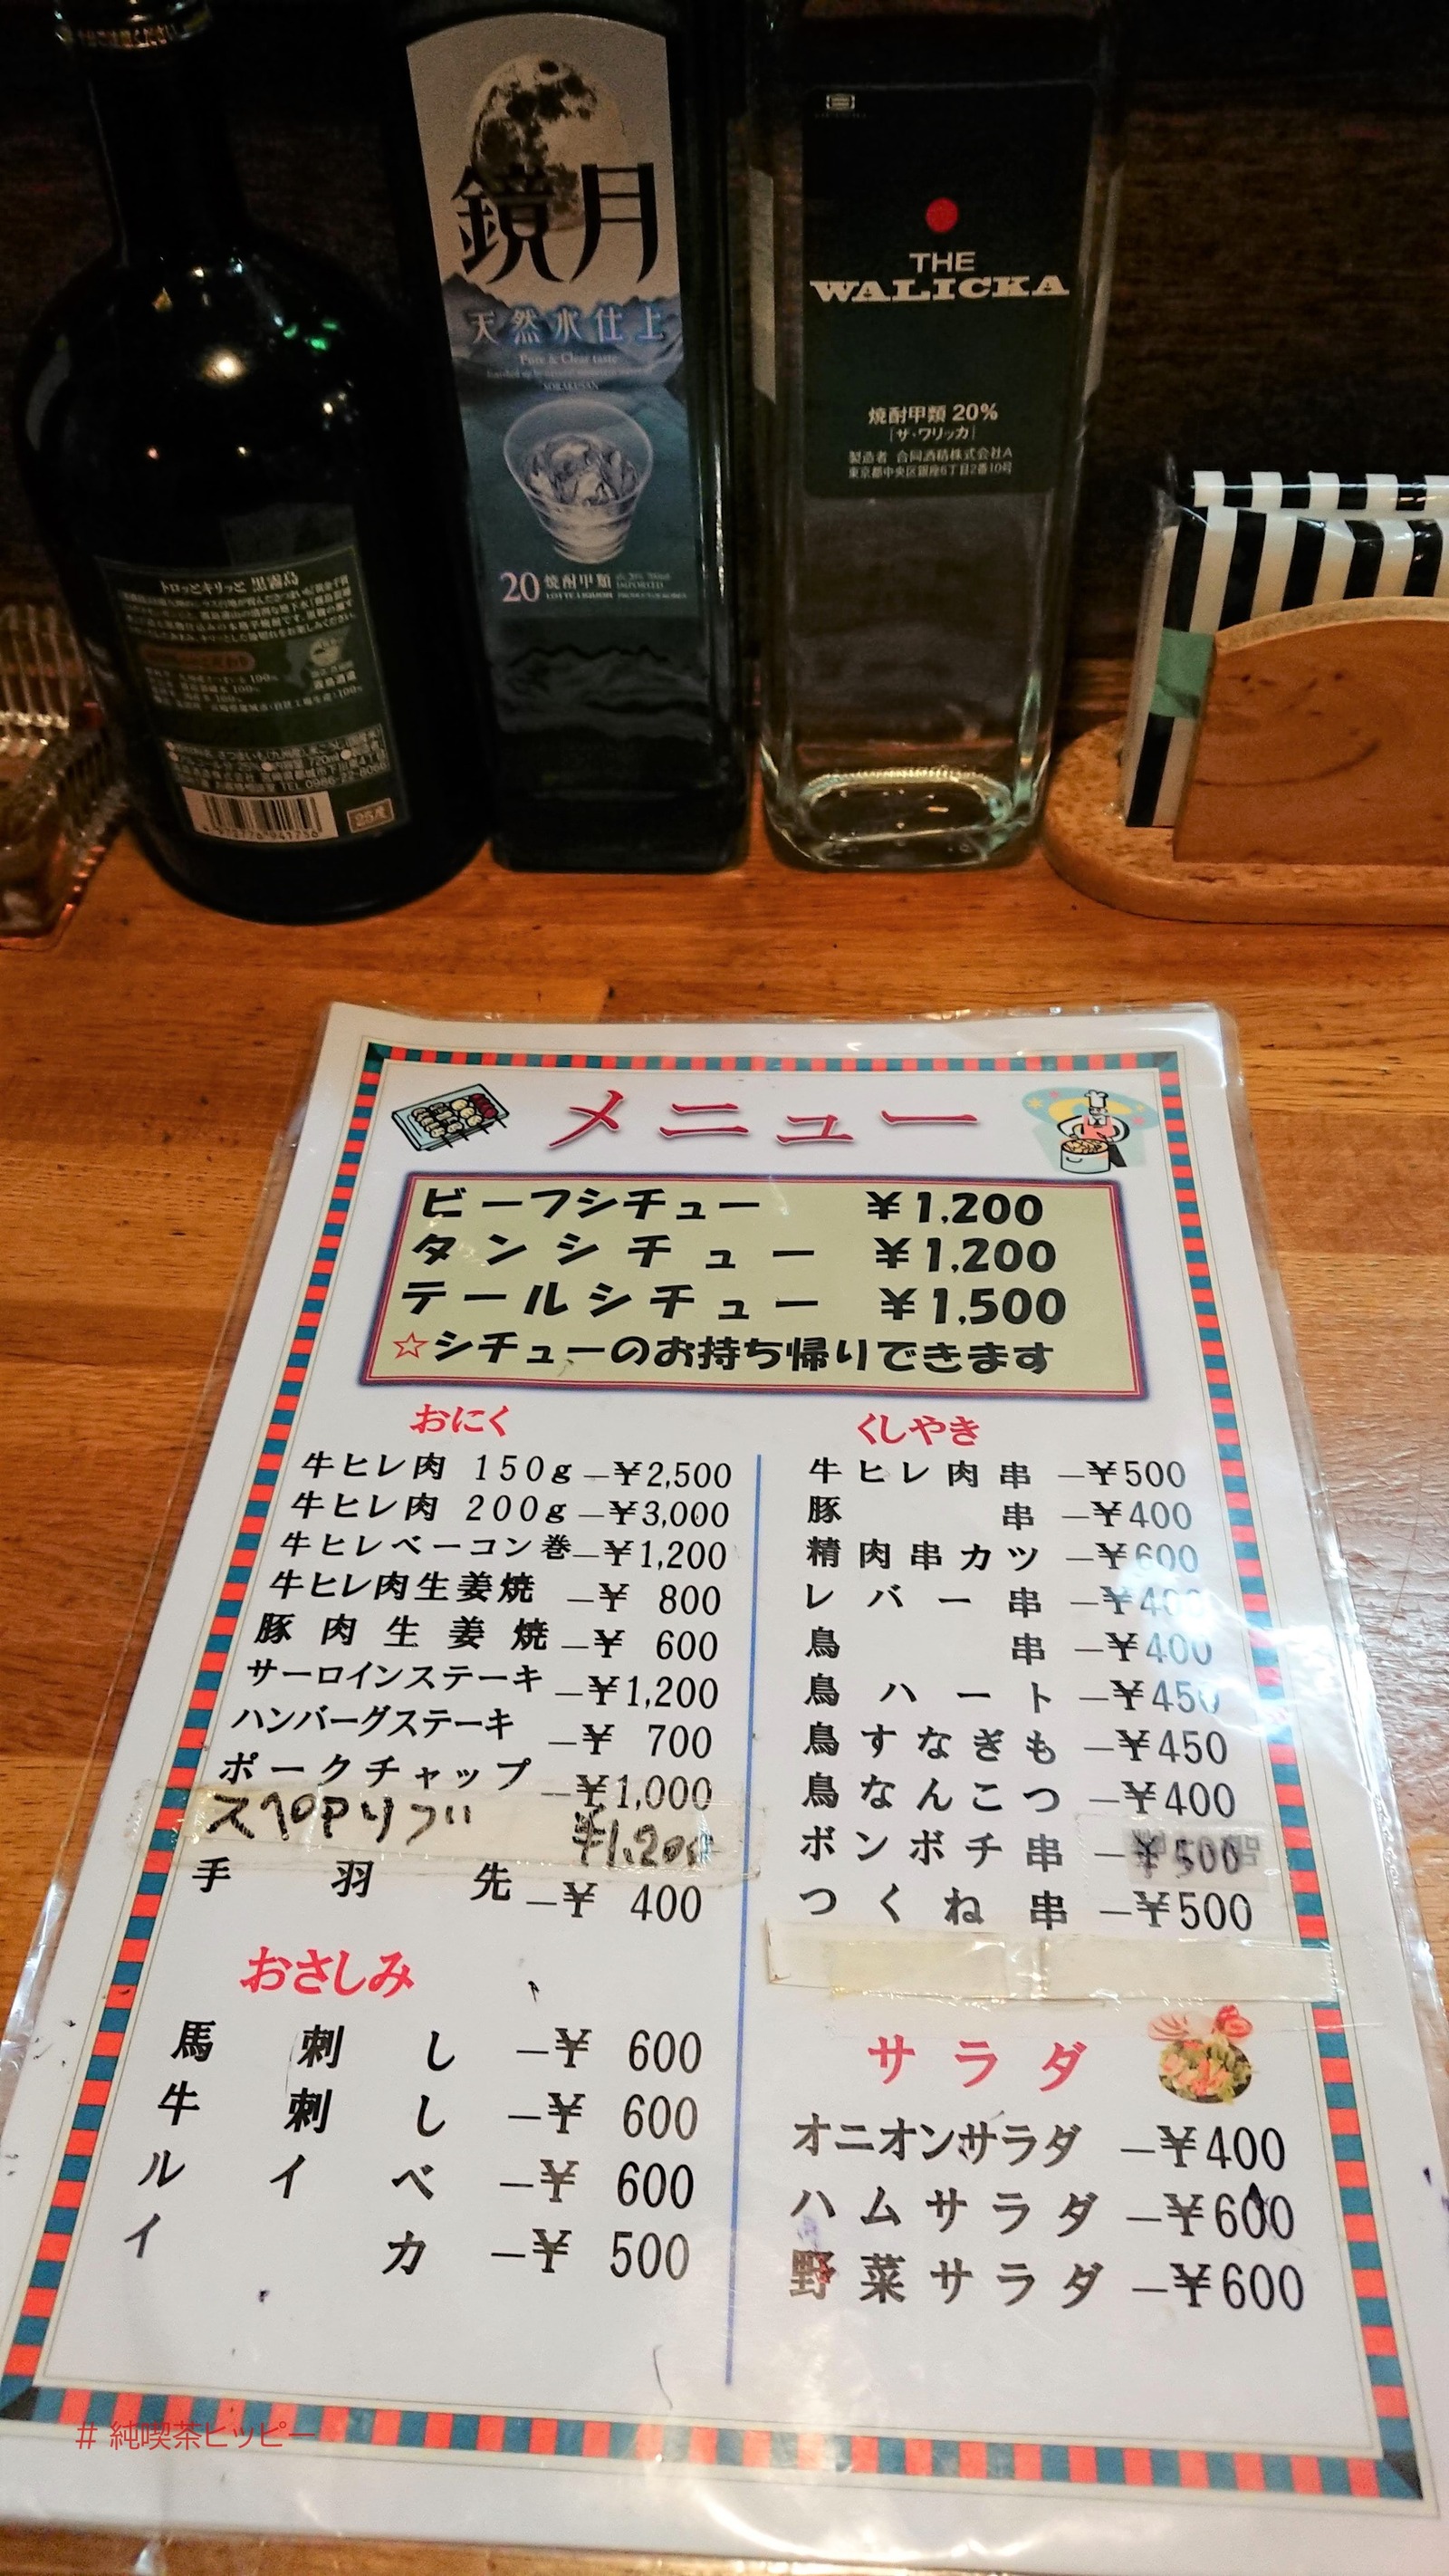 鏡月
天然水仕上
Pure & Clear taste
SORAKUSAN
20 焼酎甲類
LOTTE LIQUOR
THE
WALICKA
焼酎甲類 20%
「ザ・ワリッカ」
製造者 合同酒精株式会社A
東京都中央区銀座6丁目2番10号
トロッとキリッと 黒霧島
25A
メニュー
ビーフシチュー ¥1,200
タンシチュー ¥1,200
テールシチュー ¥1,500
☆シチューのお持ち帰りできます
おにく
牛ヒレ肉 150g—¥2,500
牛ヒレ肉 200g—¥3,000
牛ヒレベーコン巻—¥1,200
牛ヒレ肉生姜焼 —¥ 800
豚肉生姜焼 —¥ 600
サーロインステーキ —¥1,200
ハンバーグステーキ —¥ 700
ポークチャップ —¥1,000
スペアリブ ¥1,200
手羽先 —¥ 400
おさしみ
馬刺し —¥ 600
牛刺し —¥ 600
ルイベ —¥ 600
イカ —¥ 500
くしやき
牛ヒレ肉串 —¥500
豚串 —¥400
精肉串カツ —¥600
レバー串 —¥400
鳥串 —¥400
鳥ハート —¥450
鳥すなぎも —¥450
鳥なんこつ —¥400
ボンボチ串 —¥500
つくね串 —¥500
サラダ
オニオンサラダ —¥400
ハムサラダ —¥600
野菜サラダ —¥600
# 純喫茶ヒッピー